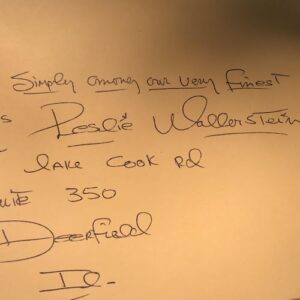 Simply among our very finest
s
Leslie Wallerstein
Lake Cook Rd
uite 350
Deerfield
Il-